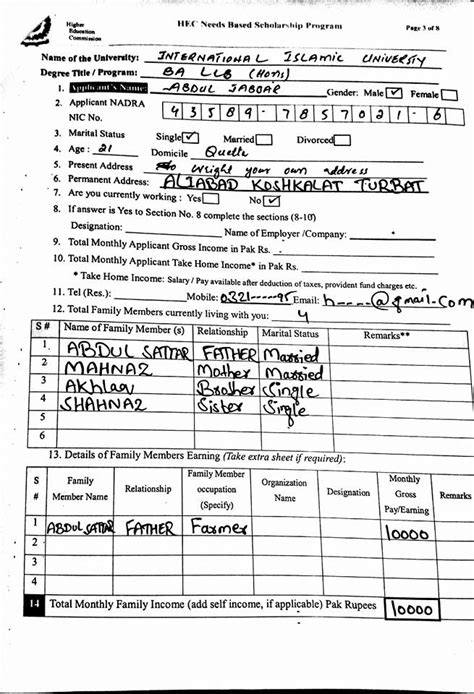 Higher
Education
Commission
HEC Needs Based Scholarship Program
Page 3 of 8
Name of the University: INTERNATIONAL ISLAMIC UNIVERSTY
Degree Title / Program: BA LLB (Hons)
1. Applicant's Name: ABDUL JABBAR Gender: Male ✓ Female
2. Applicant NADRA NIC No. 43589-7857021-6
3. Marital Status Single ✓ Married Divorced
4. Age : 21 Domicile Quetta
5. Present Address wright your own address
6. Permanent Address: ALIABAD KOSHKALAT TURBAT
7. Are you currently working : Yes No ✓
8. If answer is Yes to Section No. 8 complete the sections (8-10)
Designation: Name of Employer /Company:
9. Total Monthly Applicant Gross Income in Pak Rs.
10. Total Monthly Applicant Take Home Income* in Pak Rs.
* Take Home Income: Salary / Pay available after deduction of taxes, provident fund charges etc.
11. Tel (Res.): Mobile: 0321-----95 Email: h----@gmail.com
12. Total Family Members currently living with you: 4
S# Name of Family Member (s) Relationship Marital Status Remarks**
1. ABDUL SATTAR FATHER Married
2 MAHNAZ Mother Married
3 Akhlaq Brother Single
4 SHAHNAZ Sister Single
5
6
13. Details of Family Members Earning (Take extra sheet if required):
S # Family Member Name Relationship Family Member occupation (Specify) Organization Name Designation Monthly Gross Pay/Earning Remarks
1 ABDUL SATTAR FATHER Farmer 10000
2
3
4
14 Total Monthly Family Income (add self income, if applicable) Pak Rupees 10000